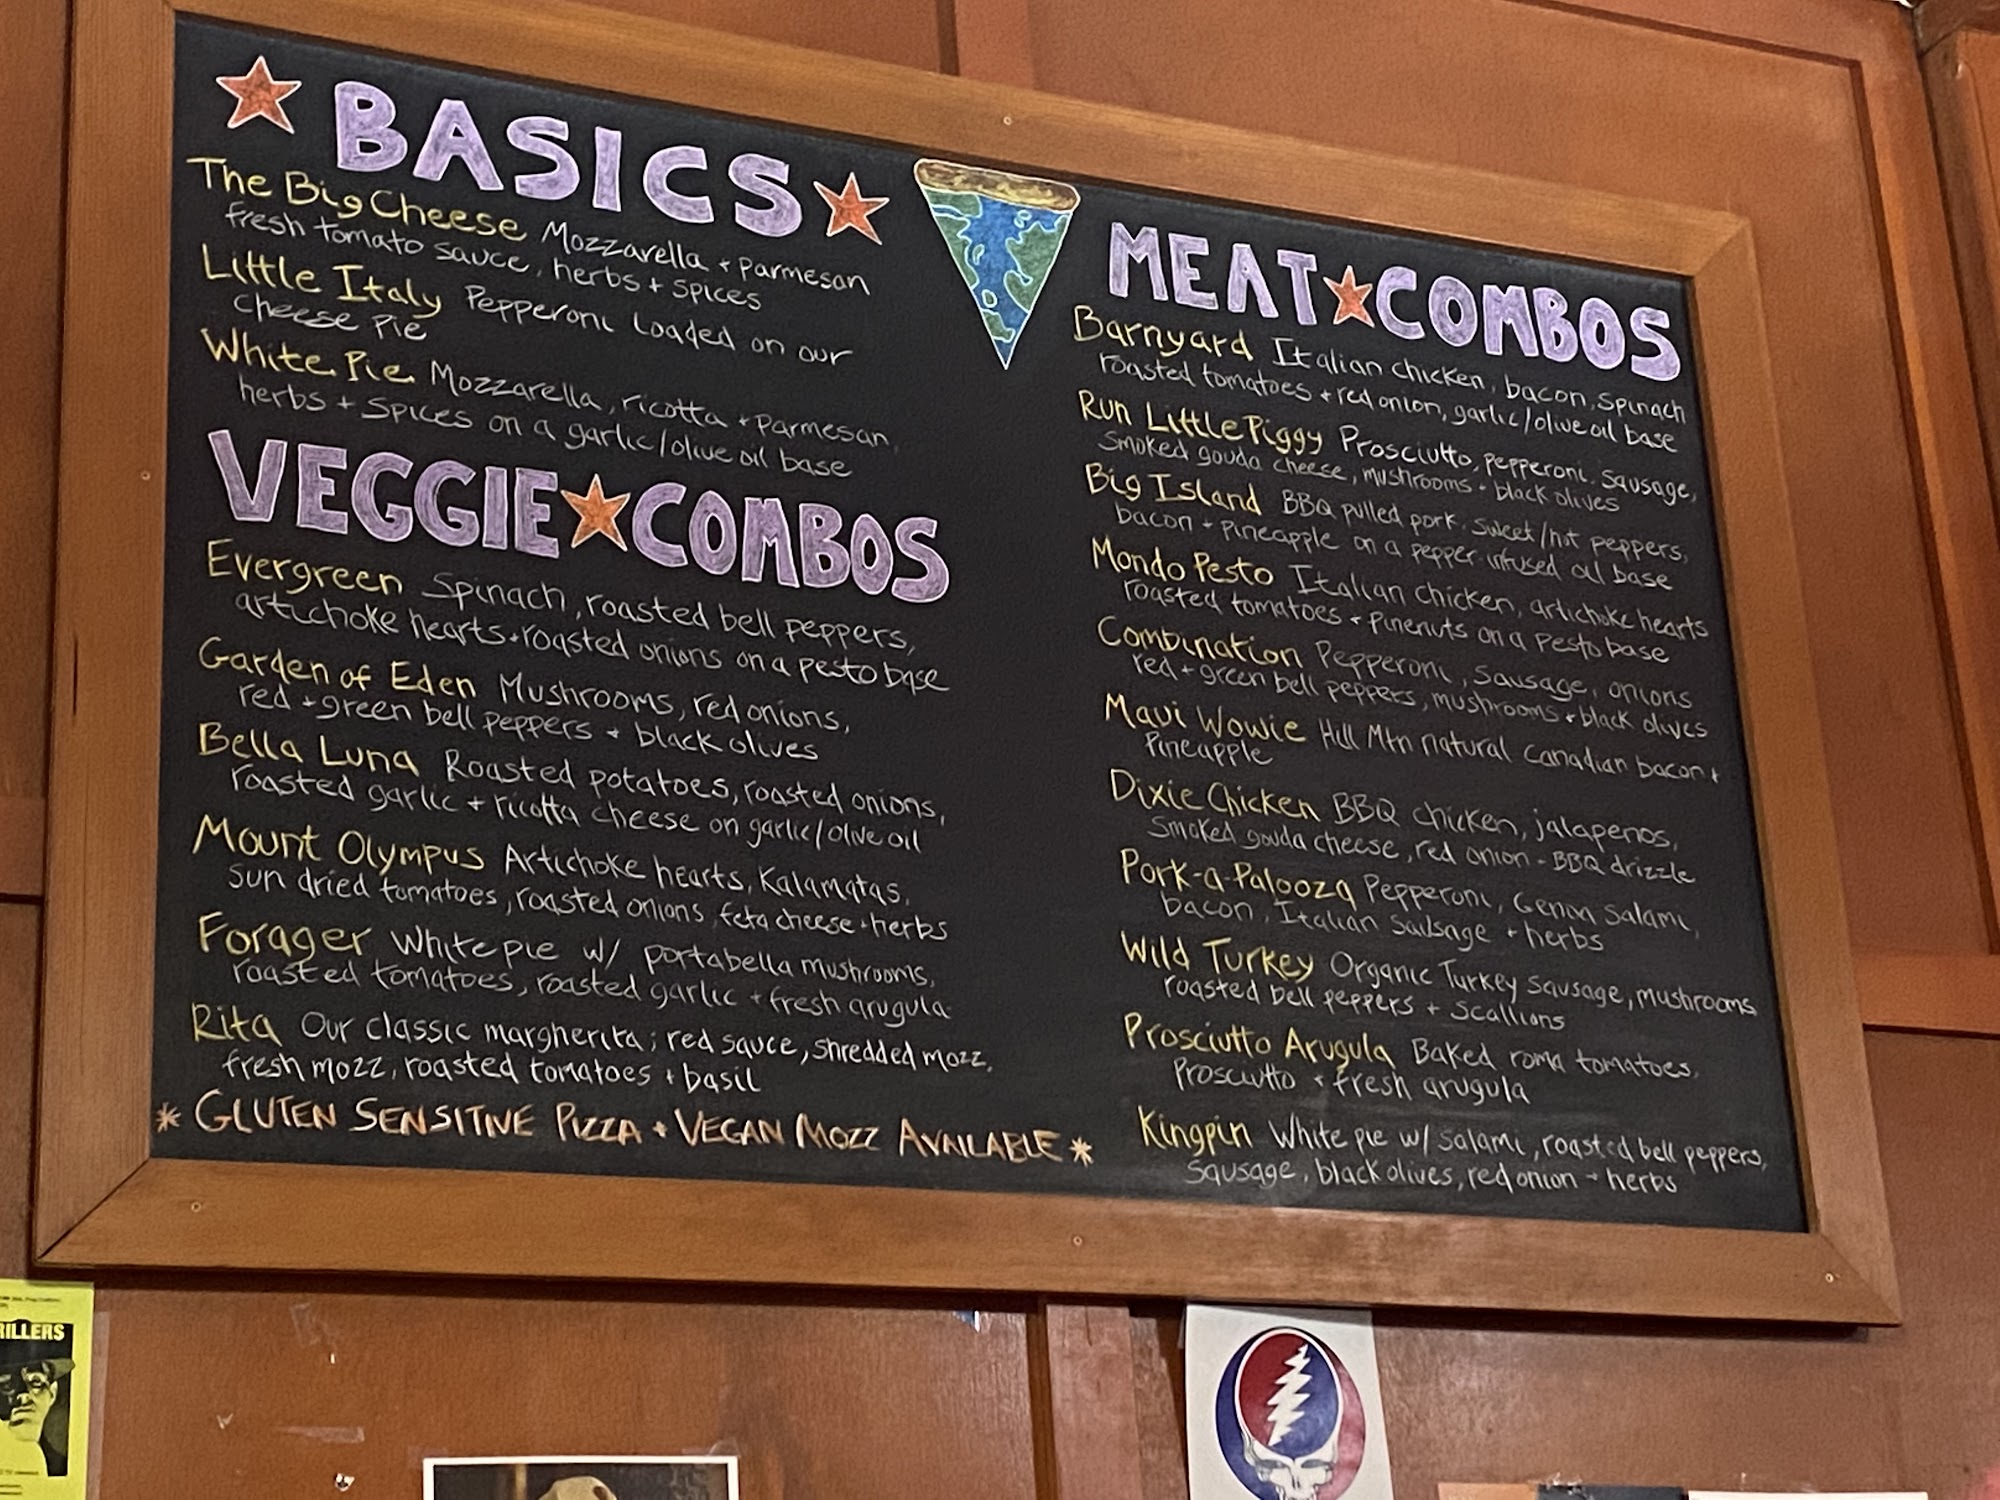 BASICS
The Big Cheese Mozzarella + parmesan
fresh tomato sauce, herbs + spices
Little Italy Pepperoni loaded on our
cheese pie
White Pie Mozzarella, ricotta + parmesan,
herbs + spices on a garlic/olive oil base
VEGGIE COMBOS
Evergreen Spinach, roasted bell peppers,
artichoke hearts + roasted onions on a pesto base
Garden of Eden Mushrooms, red onions,
red + green bell peppers + black olives
Bella Luna Roasted potatoes, roasted onions,
roasted garlic + ricotta cheese on garlic/olive oil
Mount Olympus Artichoke hearts, Kalamatas,
sun dried tomatoes, roasted onions, feta cheese + herbs
Forager White pie w/ portabella mushrooms,
roasted tomatoes, roasted garlic + fresh arugula
Rita Our classic margherita; red sauce, shredded mozz,
fresh mozz, roasted tomatoes + basil
* GLUTEN SENSITIVE PIZZA + VEGAN MOZZ AVAILABLE *
MEAT COMBOS
Barnyard Italian chicken, bacon, spinach
roasted tomatoes + red onion, garlic/olive oil base
Run Little Piggy Prosciutto, pepperoni, sausage,
smoked gouda cheese, mushrooms + black olives
Big Island BBQ pulled pork, sweet/hot peppers,
bacon + pineapple on a pepper-infused oil base
Mondo Pesto Italian chicken, artichoke hearts
roasted tomatoes + pinenuts on a pesto base
Combination Pepperoni, sausage, onions
red + green bell peppers, mushrooms + black olives
Maui Wowie Hill Mtn natural canadian bacon +
pineapple
Dixie Chicken BBQ chicken, jalapenos,
smoked gouda cheese, red onion - BBQ drizzle
Pork-a-Palooza Pepperoni, Genoa salami,
bacon, Italian sausage + herbs
Wild Turkey Organic Turkey sausage, mushrooms
roasted bell peppers + scallions
Prosciutto Arugula Baked roma tomatoes,
prosciutto + fresh arugula
Kingpin White pie w/ salami, roasted bell peppers,
sausage, black olives, red onion + herbs
RILLERS